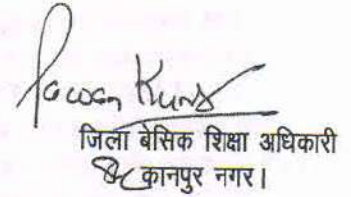 Pawan Kumar
जिला बेसिक शिक्षा अधिकारी
कानपुर नगर।